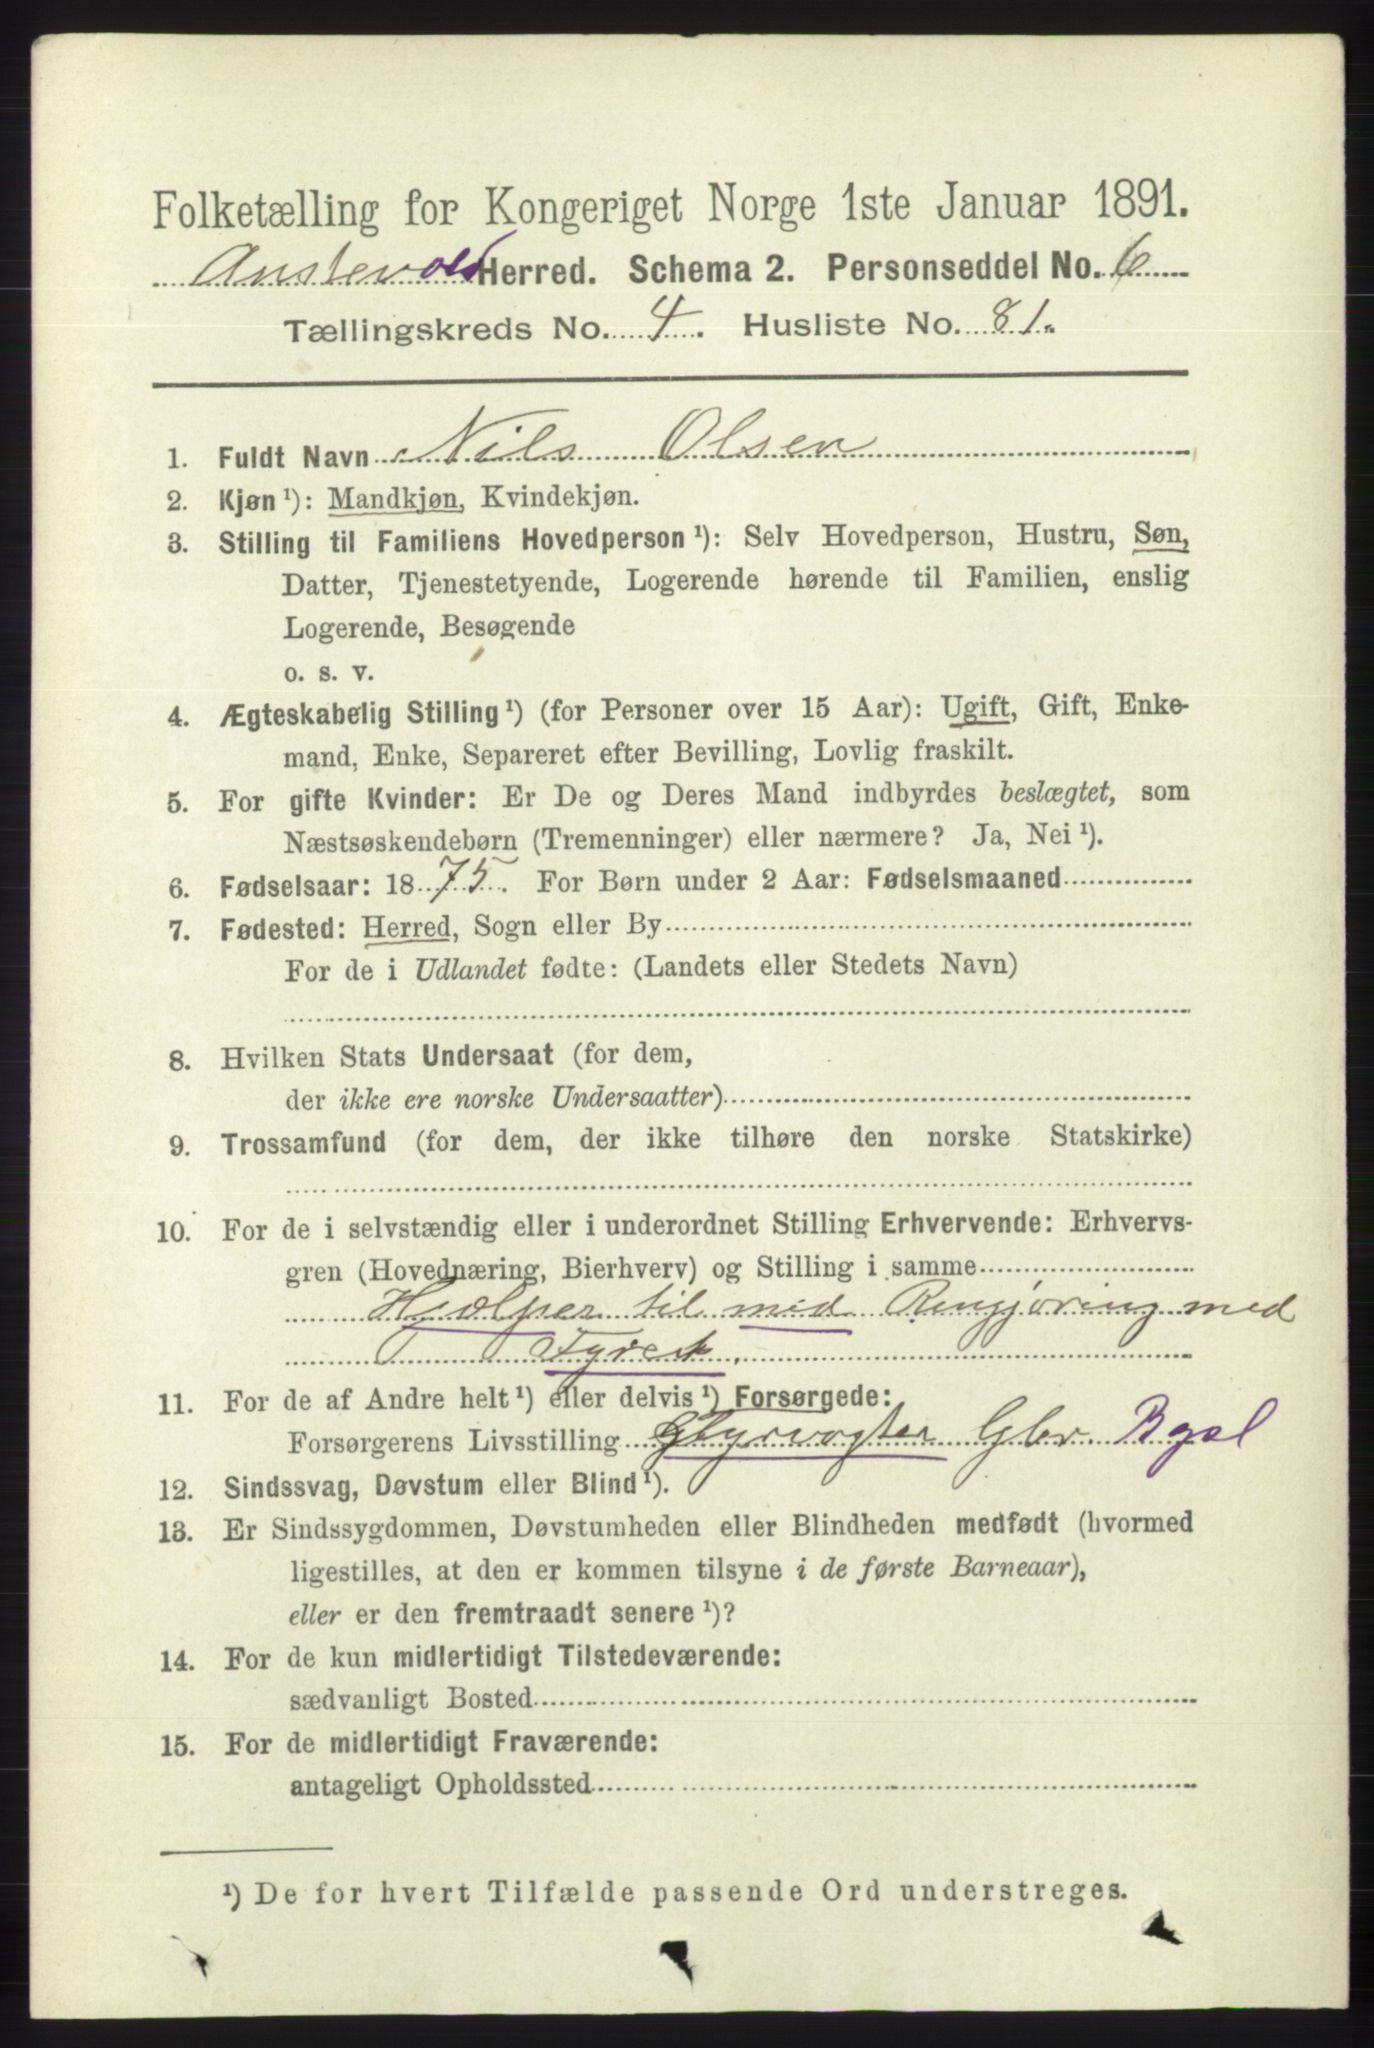 Folketælling for Kongeriget Norge 1ste Januar 1891.
Austevold Herred. Schema 2. Personseddel No. 6
Tællingskreds No. 4. Husliste No. 81.
1. Fuldt Navn Nils Olsen
2. Kjøn ¹): Mandkjøn, Kvindekjøn.
3. Stilling til Familiens Hovedperson ¹): Selv Hovedperson, Hustru, Søn,
Datter, Tjenestetyende, Logerende hørende til Familien, enslig
Logerende, Besøgende
o. s. v.
4. Ægteskabelig Stilling ¹) (for Personer over 15 Aar): Ugift, Gift, Enke-
mand, Enke, Separeret efter Bevilling, Lovlig fraskilt.
5. For gifte Kvinder: Er De og Deres Mand indbyrdes beslægtet, som
Næstsøskendebørn (Tremenninger) eller nærmere? Ja, Nei ¹).
6. Fødselsaar: 1875. For Børn under 2 Aar: Fødselsmaaned
7. Fødested: Herred, Sogn eller By
For de i Udlandet fødte: (Landets eller Stedets Navn)
8. Hvilken Stats Undersaat (for dem,
der ikke ere norske Undersaatter)
9. Trossamfund (for dem, der ikke tilhøre den norske Statskirke)
10. For de i selvstændig eller i underordnet Stilling Erhvervende: Erhvervs-
gren (Hovednæring, Bierhverv) og Stilling i samme
Hjælper til med Rengjøring med
Fyret.
11. For de af Andre helt ¹) eller delvis ¹) Forsørgede:
Forsørgerens Livsstilling Gbr
12. Sindssvag, Døvstum eller Blind ¹).
13. Er Sindssygdommen, Døvstumheden eller Blindheden medfødt (hvormed
ligestilles, at den er kommen tilsyne i de første Barneaar),
eller er den fremtraadt senere ¹)?
14. For de kun midlertidigt Tilstedeværende:
sædvanligt Bosted
15. For de midlertidigt Fraværende:
antageligt Opholdssted
¹) De for hvert Tilfælde passende Ord understreges.